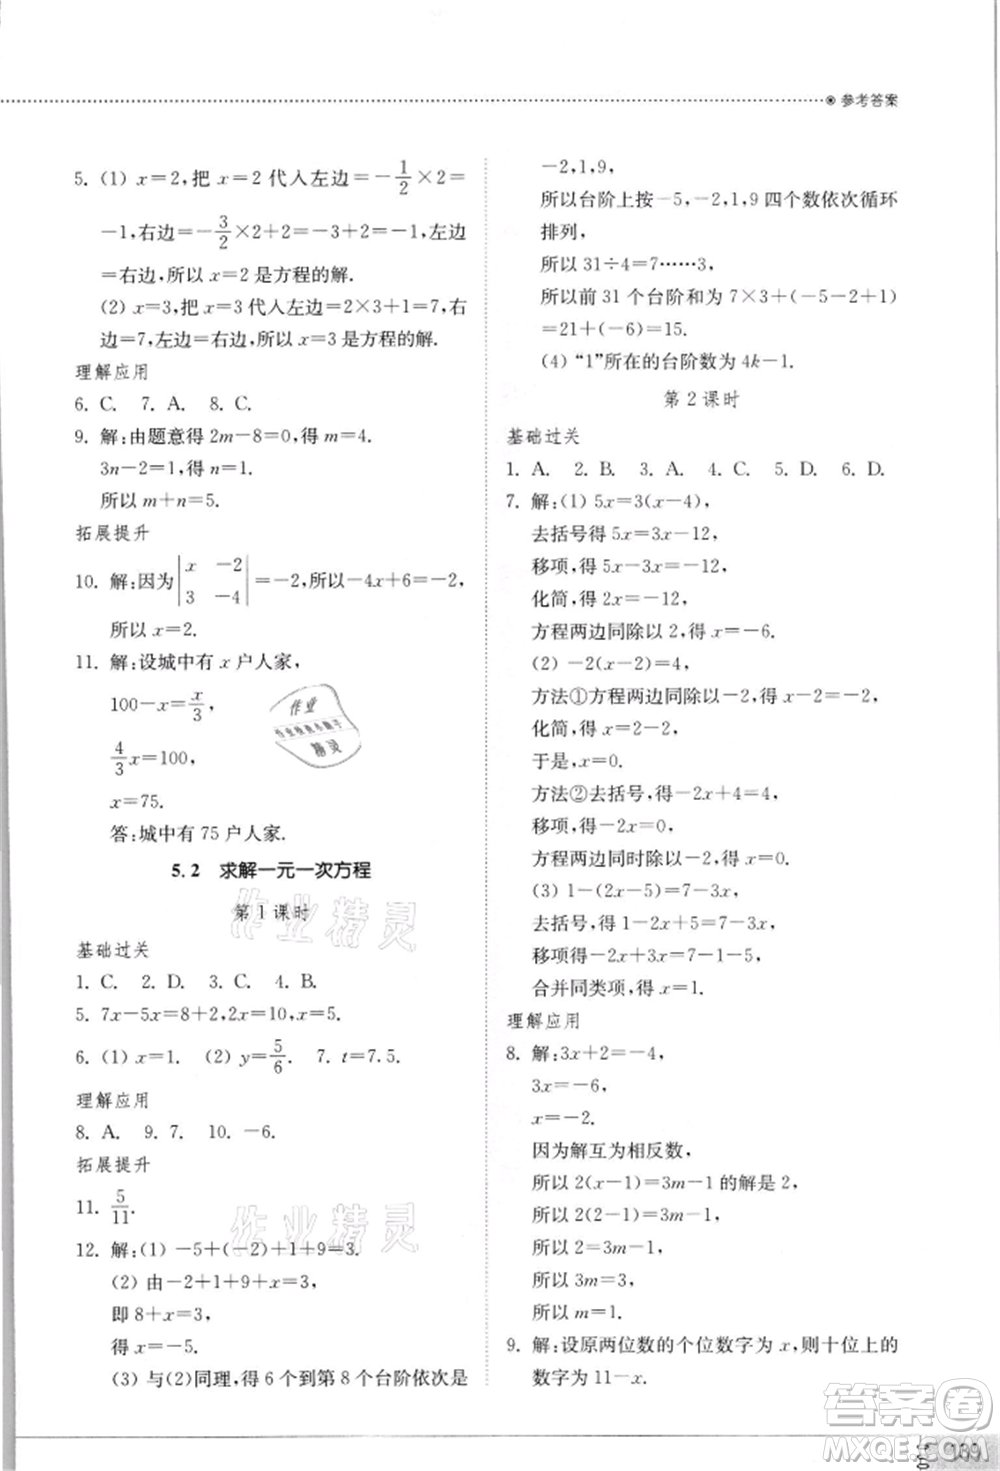 参考答案
5. (1) x=2,把 x=2 代入左边=-1/2×2=
-1,右边=-3/2×2+2=-3+2=-1,左边
=右边,所以 x=2 是方程的解.
(2) x=3,把 x=3 代入左边=2×3+1=7,右
边=7,左边=右边,所以 x=3 是方程的解.
理解应用
6. C. 7. A. 8. C.
9. 解:由题意得 2m-8=0,得 m=4.
3n-2=1,得 n=1.
所以 m+n=5.
拓展提升
10. 解:因为|x -2|=-2,所以-4x+6=-2,
|3 -4|
所以 x=2.
11. 解:设城中有 x 户人家,
100-x=x/3,
4/3x=100,
x=75.
答:城中有 75 户人家.
5.2 求解一元一次方程
第 1 课时
基础过关
1. C. 2. D. 3. C. 4. D.
5. 7x-5x=8+2,2x=10,x=5.
6. (1) x=1. (2) y=5/6. 7. t=7.5.
理解应用
8. A. 9. 7. 10. -6.
拓展提升
11. 5/11.
12. 解:(1) -5+(-2)+1+9=3.
(2) 由-2+1+9+x=3,
即 8+x=3,
得 x=-5.
(3) 与(2)同理,得 6 个到第 8 个台阶依次是
-2,1,9,
所以台阶上按-5,-2,1,9 四个数依次循环
排列,
所以 31÷4=7……3,
所以前 31 个台阶和为 7×3+(-5-2+1)
=21+(-6)=15.
(4) “1”所在的台阶数为 4k-1.
第 2 课时
基础过关
1. A. 2. B. 3. A. 4. C. 5. D. 6. D.
7. 解:(1) 5x=3(x-4),
去括号得 5x=3x-12,
移项,得 5x-3x=-12,
化简,得 2x=-12,
方程两边同除以 2,得 x=-6.
(2) -2(x-2)=4,
方法①方程两边同除以-2,得 x-2=-2,
化简,得 x=-2+2,
于是,得 x=0.
方法②去括号,得-2x+4=4,
移项,得-2x=0,
方程两边同时除以-2,得 x=0.
(3) 1-(x-5)=7-3x,
去括号,得 1-x+5=7-3x,
移项得-x+3x=7-1-5,
合并同类项,得 x=1.
理解应用
8. 解:3x+2=-4,
3x=-6,
x=-2.
因为解互为相反数,
所以 2(x-1)=3m-1 的解是 2,
所以 2(2-1)=3m-1,
所以 2=3m-1,
所以 3m=3,
所以 m=1.
9. 解:设原两位数的个位数字为 x,则十位上的
数字为 11-x.
作业
精灵
作业精灵
作业精灵
答案卷
MXQE.COM